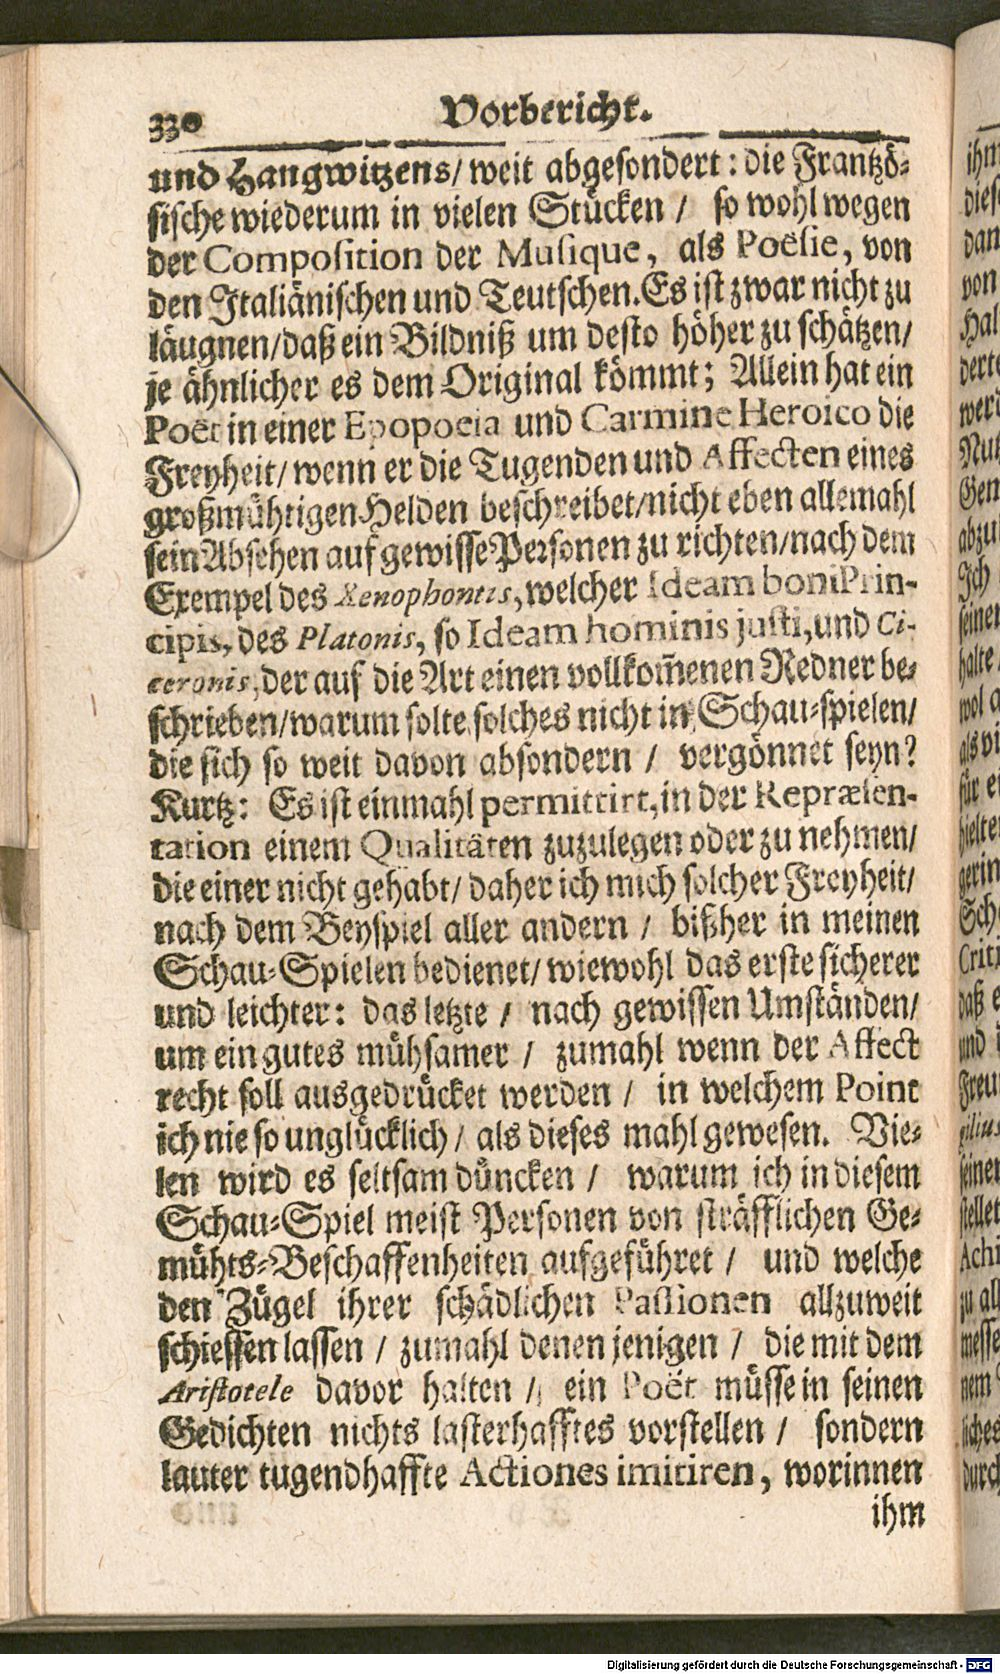 330 Vorbericht.
und Haugwitzens/ weit abgesondert: die Frantzö-
sische wiederum in vielen Stücken / so wohl wegen
der Composition der Musique, als Poësie, von
den Italiänischen und Teutschen. Es ist zwar nicht zu
läugnen/ daß ein Bildniß um desto höher zu schätzen/
je ähnlicher es dem Original kömmt; Allein hat ein
Poët in einer Epopoeia und Carmine Heroico die
Freyheit/ wenn er die Tugenden und Affecten eines
großmühtigen Helden beschreibet/ nicht eben allemahl
sein Absehen auf gewisse Personen zu richten/ nach dem
Exempel des Xenophontis, welcher Ideam boni Prin-
cipis, des Platonis, so Ideam hominis justi, und Ci-
ceronis, der auf die Art einen vollkom̃enen Redner be-
schrieben/ warum solte solches nicht in Schau-spielen/
die sich so weit davon absondern / vergönnet seyn?
Kurtz: Es ist einmahl permittirt, in der Repræsen-
tation einem Qualitäten zuzulegen oder zu nehmen/
die einer nicht gehabt/ daher ich mich solcher Freyheit/
nach dem Beyspiel aller andern / bißher in meinen
Schau-Spielen bedienet/ wiewohl das erste sicherer
und leichter: das letzte / nach gewissen Umständen/
um ein gutes mühsamer / zumahl wenn der Affect
recht soll ausgedrücket werden / in welchem Point
ich nie so unglücklich / als dieses mahl gewesen. Vie-
len wird es seltsam düncken / warum ich in diesem
Schau-Spiel meist Personen von sträfflichen Ge-
mühts-Beschaffenheiten aufgeführet / und welche
den Zügel ihrer schädlichen Passionen allzuweit
schiessen lassen / zumahl denen jenigen / die mit dem
Aristotele davor halten / ein Poët müsse in seinen
Gedichten nichts lasterhafftes vorstellen / sondern
lauter tugendhaffte Actiones imitiren, worinnen
ihm
Digitalisierung gefördert durch die Deutsche Forschungsgemeinschaft - DFG